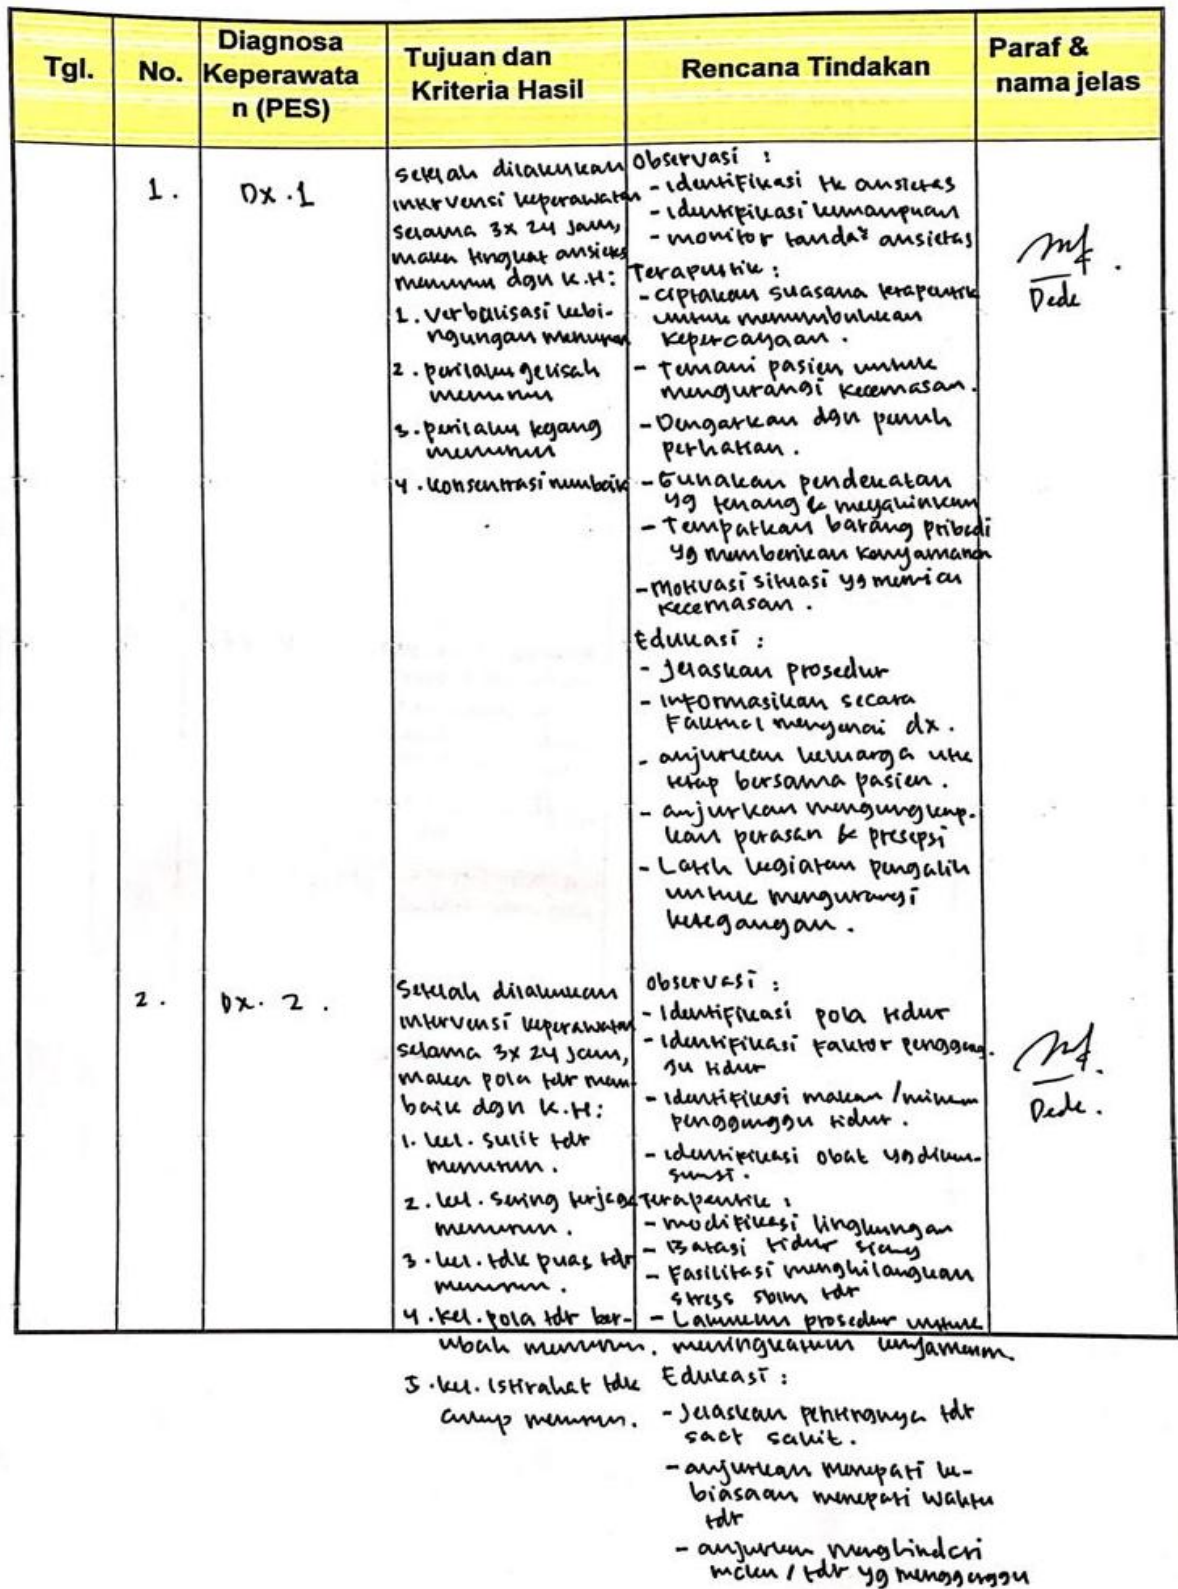 Tgl.
No.
Diagnosa
Keperawata
n (PES)
Tujuan dan
Kriteria Hasil
Rencana Tindakan
Paraf &
nama jelas
1.
Dx.1
Setelah dilakukan
intervensi keperawatan
selama 3x24 jam,
maka tingkat ansietas
menurun dgn K.H:
1. verbalisasi kebi-
ngungan menurun
2. perilaku gelisah
menurun
3. perilaku tegang
menurun
4. konsentrasi membaik
Observasi :
- identifikasi tk ansietas
- identifikasi kemampuan
- monitor tanda² ansietas
Terapeutik :
- ciptakan suasana terapeutik
untuk menumbuhkan
kepercayaan.
- Temani pasien untuk
mengurangi kecemasan.
- Dengarkan dgn penuh
perhatian.
- Gunakan pendekatan
yg tenang & meyakinkan
- Tempatkan barang pribadi
yg memberikan kenyamanan
- motivasi situasi yg memicu
kecemasan.
Edukasi :
- Jelaskan prosedur
- informasikan secara
Faktual mengenai dx.
- anjurkan keluarga utk
tetap bersama pasien.
- anjurkan mengungkap-
kan perasan & presepsi
- Latih kegiatan pengalih
untuk mengurangi
ketegangan.
Dede
2.
Dx. 2.
Setelah dilakukan
intervensi keperawatan
selama 3x24 jam,
maka pola tdr mem-
baik dgn K.H:
1. kel. sulit tdr
menurun.
2. kel. sering terjaga
menurun.
3. kel. tdk puas tdr
menurun.
4. kel. pola tdr ber-
ubah menurun.
5. kel. istirahat tdk
cukup menurun.
Observasi :
- Identifikasi pola tidur
- Identifikasi faktor penggang-
gu tidur
- Identifikasi makan/minum
pengganggu tidur.
- identifikasi obat yg dikon-
sumsi.
Terapeutik :
- modifikasi lingkungan
- Batasi tidur siang
- Fasilitasi menghilangkan
stress sblm tdr
- Lakukan prosedur untuk
meningkatkan kenyamanan
Edukasi :
- Jelaskan pentingnya tdr
saat sakit.
- anjurkan menepati ke-
biasaan menepati waktu
tdr
- anjurkan menghindari
makan / tdr yg mengganggu
Dede.